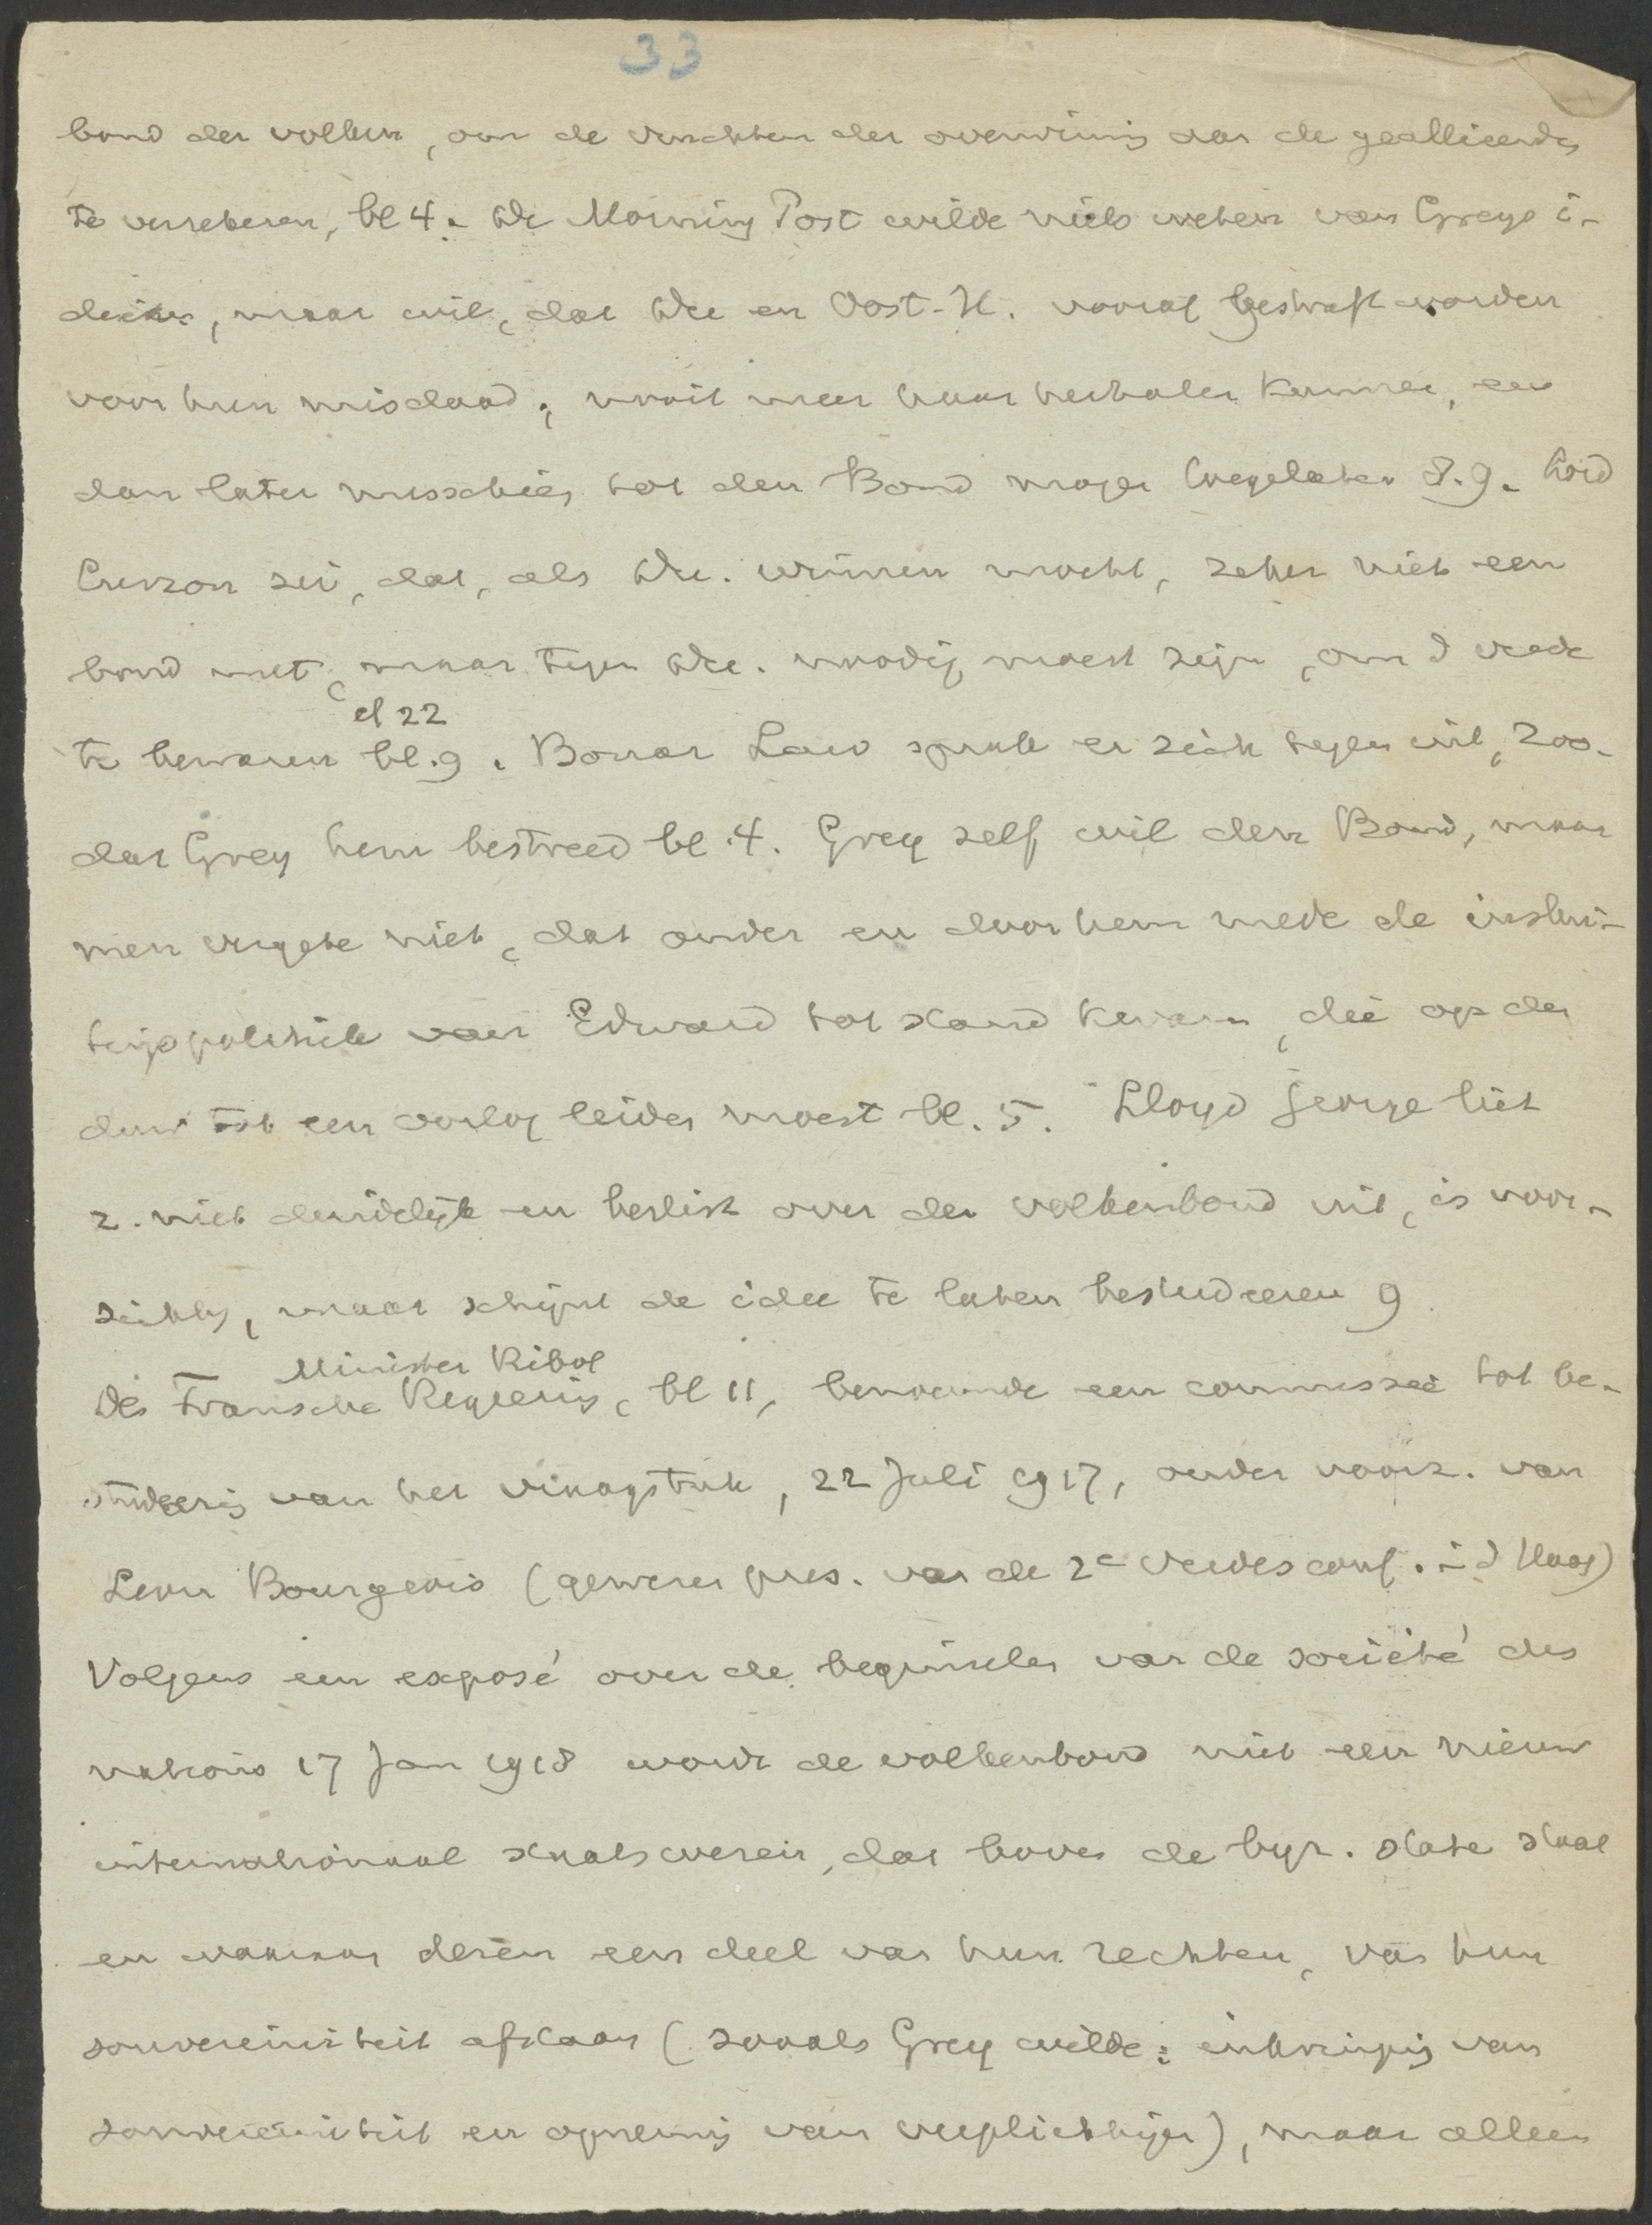 33
bond der volken, om de vruchten der overwinning aan de geallieerden
te verzekeren, bl 4. De Morning Post wilde niets weten van Greys i-
deeën, maar wil, dat De en Oost-H. vooraf gestraft worden
voor hun misdaad, nooit meer haar herhalen kunnen, en
dan later misschien tot den Bond mogen toegelaten 8.9. Lord
Curzon zei, dat, als De. winnen mocht, zeker niet een
bond met, maar tegen De. noodig moest zijn, om d vrede
cf 22
te bewaren bl. 9. Bonar Law sprak er zich tegen uit, zoo-
dat Grey hem bestreed bl. 4. Grey zelf wil den Bond, maar
men vergete niet, dat onder en door hem mede de inslui-
tingspolitiek van Edward tot stand kwam, die op den
duur tot een oorlog leiden moest bl. 5. Lloyd George liet
z. niet duidelijk en beslist over den volkenbond uit, is voor-
zichtig, maar schijnt de idee te laten bestudeeren 9
Minister Ribot
De Fransche Regeering, bl 11, benoemde een commissie tot be-
studeering van het vraagstuk, 22 Juli 1917, onder voorz. van
Leon Bourgeois (gewezen pres. van de 2e Vredesconf. i d Haag)
Volgens een exposé over de beginselen van de société des
nations 17 Jan 1918 wordt de volkenbond niet een nieuw
internationaal staatswezen, dat boven de byz. state staat
en waaraan dezen een deel van hun rechten, van hun
souvereiniteit afstaan (zooals Grey wilde: inkrimping van
souvereiniteit en opneming van verplichtingen), maar alleen